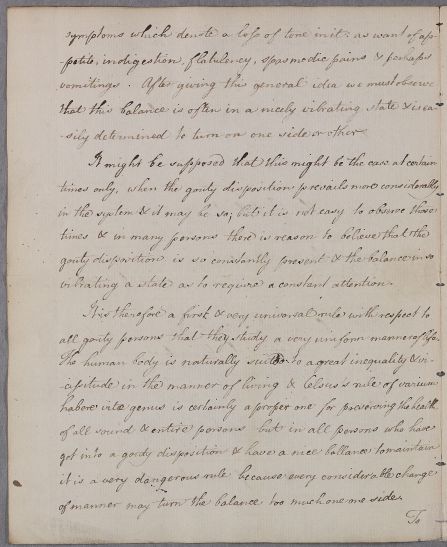 symptoms which denote a loss of tone in it: as want of ap-
petite, indigestion, flatulency, spasmodic pains & perhaps
vomitings. After giving this general idea we must observe
that this balance is often in a nicely vibrating state & is ea-
sily determined to turn on one side or other.
It might be supposed that this might be the case at certain
times only, when the gouty disposition prevails more considerably
in the system & it may be so; but it is not easy to observe those
times & in many persons there is reason to believe that the
gouty disposition is so constantly present & the balance in so
vibrating a state as to require a constant attention.
It is therefore a first & very universal rule with respect to
all gouty persons that they study a very uniform manner of life.
The human body is naturally suited to a great inequality & vi-
cissitude in the manner of living & Celsus's rule of varium
habere vitæ genus is certainly a proper one for preserving the health
of all sound & entire persons but in all persons who have
got into a gouty disposition & have a nice ballance to maintain
it is a very dangerous rule because every considerable change
of manner may turn the balance too much one one side.
To